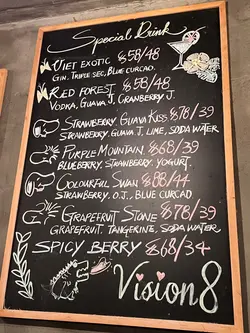 Special Drink
Viet Exotic $58/48
Gin. Triple sec, Blue curcao.
Red Forest $58/48
Vodka, Guava J, Cranberry J.
Strawberry Guava Kiss $78/39
Strawberry. Guava J, Lime, Soda water
Purple Mountain $68/39
Blueberry. Strawberry. Yogurt.
Colourful Swan $88/44
Strawberry. O.J., Blue Curcao.
Grapefruit Stone $78/39
Grapefruit. Tangerine, Soda water
Spicy Berry $68/34
Vision8